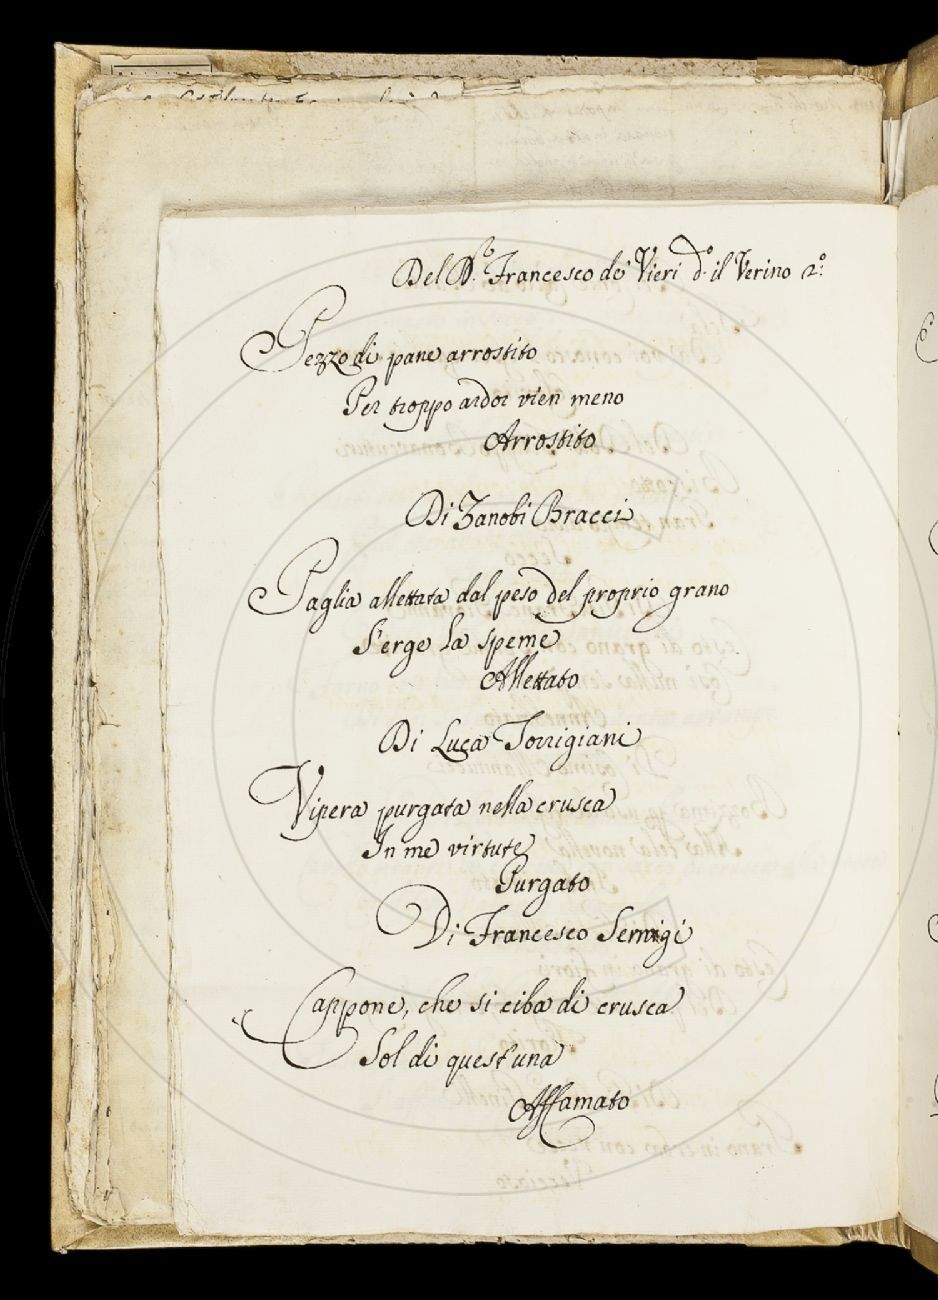 Del D.ᵒ Francesco de' Vieri d.º il Verino 2º:
Pezzo di pane arrostito
Per troppo ardor vien meno
Arrostito
Di Zanobi Bracci
Paglia allettata dal peso del proprio grano
S'erge la speme
Allettato
Di Luca Torrigiani
Vipera purgata nella crusca
In me virtute
Purgato
Di Francesco Sernigi
Cappone, che si ciba di crusca
Sol di quest'una
Affamato